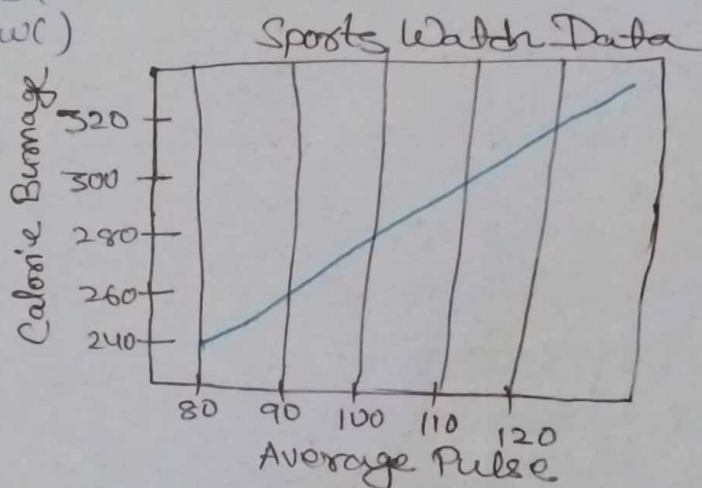 wc)
Sports Watch Data
Calorie Burnage
320
300
280
260
240
80 90 100 110 120
Average Pulse